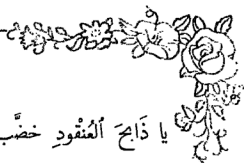 يا ذَابِحَ ٱلْعُنْقودِ خضَّب